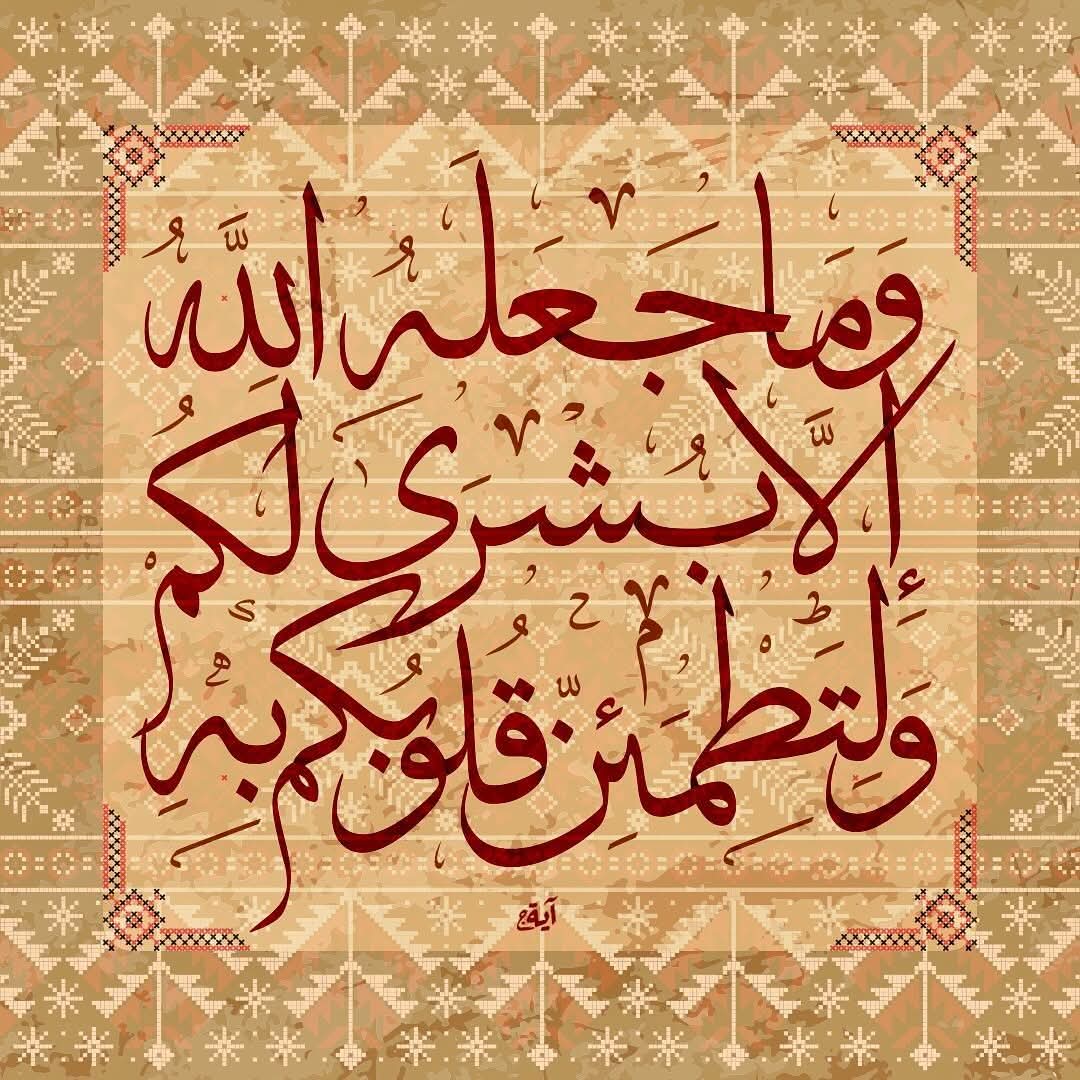 وَمَا جَعَلَهُ اللَّهُ
إِلَّا بُشْرَىٰ لَكُمْ
وَلِتَطْمَئِنَّ قُلُوبُكُمْ بِهِ
آية